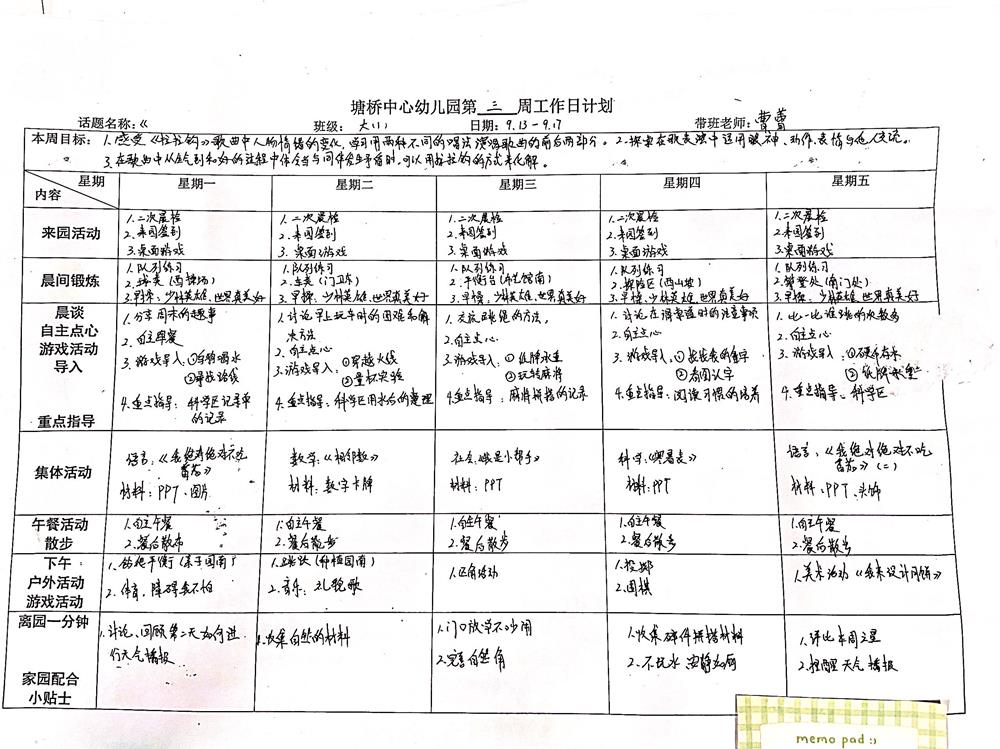 塘桥中心幼儿园第 三 周工作日计划
话题名称:《 班级: 大(1) 日期: 9.13-9.17 带班老师: 曹蕾
本周目标: 1.感受《拉拉钩》歌曲中人物情绪的变化,学习用两种不同的唱法演唱歌曲的前后两部分。 2.探索在歌表演中运用眼神、动作、表情与他人交流。
3.在歌曲中从生气到和好的过程中体会当与同伴发生矛盾时,可以用拉拉钩的方式来化解。
星期 内容 星期一 星期二 星期三 星期四 星期五
来园活动
1.二次晨检 1.二次晨检 1.二次晨检 1.二次晨检 1.二次晨检
2.来园签到 2.来园签到 2.来园签到 2.来园签到 2.来园签到
3.桌面游戏 3.桌面游戏 3.桌面游戏 3.桌面游戏 3.桌面游戏
晨间锻炼
1.队列练习 1.队列练习 1.队列练习 1.队列练习 1.队列练习
2.球类(西操场) 2.车类(门卫东) 2.平衡台(南) 2.探险区(西山坡) 2.(南门处)
3.早操:少林英雄、世界真美好 3.早操:少林英雄、世界真美好 3.早操:少林英雄、世界真美好 3.早操:少林英雄、世界真美好 3.早操:少林英雄、世界真美好
晨谈
自主点心
游戏活动
导入
重点指导
1.分享周末的趣事 1.讨论早上玩车时的困难和解 1.交流跳绳的方法, 1.讨论在滑索道时的注意事项 1.比一比谁跳的次数多
决方法
2.自主点心 2.自主点心 2.自主点心 2.自主点心
3.游戏导入: 3.游戏导入: ①穿越火线 3.游戏导入: ①纸牌 3.游戏导入: ① 3.游戏导入: ①硬币
②量杯实验 ②玩转麻将 ②看图认字 ②纸牌
4.重点指导: 科学区记录单 4.重点指导: 科学区用水后的整理 4.重点指导: 麻将拼搭的记录 4.重点指导: 阅读习惯的培养 4.重点指导: 科学区
的记录
集体活动
语言:《我绝对绝对不吃 数学:《相邻数》 社会:《我是小帮手》 科学: 语言:《我绝对绝对不吃
番茄》 番茄》(二)
材料:PPT、图片 材料:数字卡牌 材料:PPT 材料:PPT 材料:PPT、头饰
午餐活动
散步
1.自主午餐 1.自主午餐 1.自主午餐 1.自主午餐 1.自主午餐
2.餐后散步 2.餐后散步 2.餐后散步 2.餐后散步 2.餐后散步
下午
户外活动
游戏活动
1.平衡 1.(种植园南) 1.区角活动 1.投掷 1.美术活动《我来设计》
2.体育:障碍我不怕 2.音乐:礼貌歌 2.围棋
离园一分钟
家园配合
小贴士
1.讨论、回顾第二天如何进 1.收集自然的材料 1.门口放学不逗留 1.收集碎件拼搭材料 1.评比本周之星
行天气播报 2.完善自然角 2.不玩水 2.提醒天气播报
memo pad :)